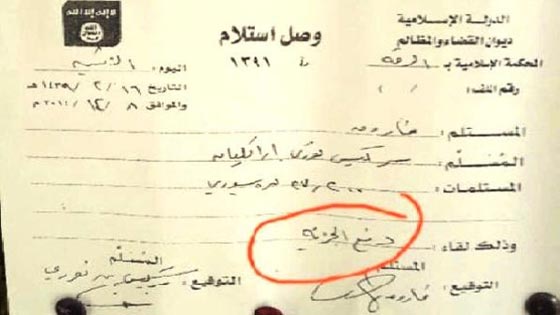 الدولة الإسلامية
ديوان القضاء والمظالم
المحكمة الإسلامية بـ : الرقة
رقم الملف :
وصل استلام
١٣٩١
اليوم :
التاريخ ١٦ / ٢ / ١٤٣٥ هـ
والموافق ٨ / ١٢ /
المستلم : فاروق
المُسَلِّم : سركيس نوري اراكليان
المستلمات : ليره سوري
وذلك لقاء : دفع الجزية
المستلم
التوقيع : فاروق
المُسَلِّم
التوقيع : سركيس نوري